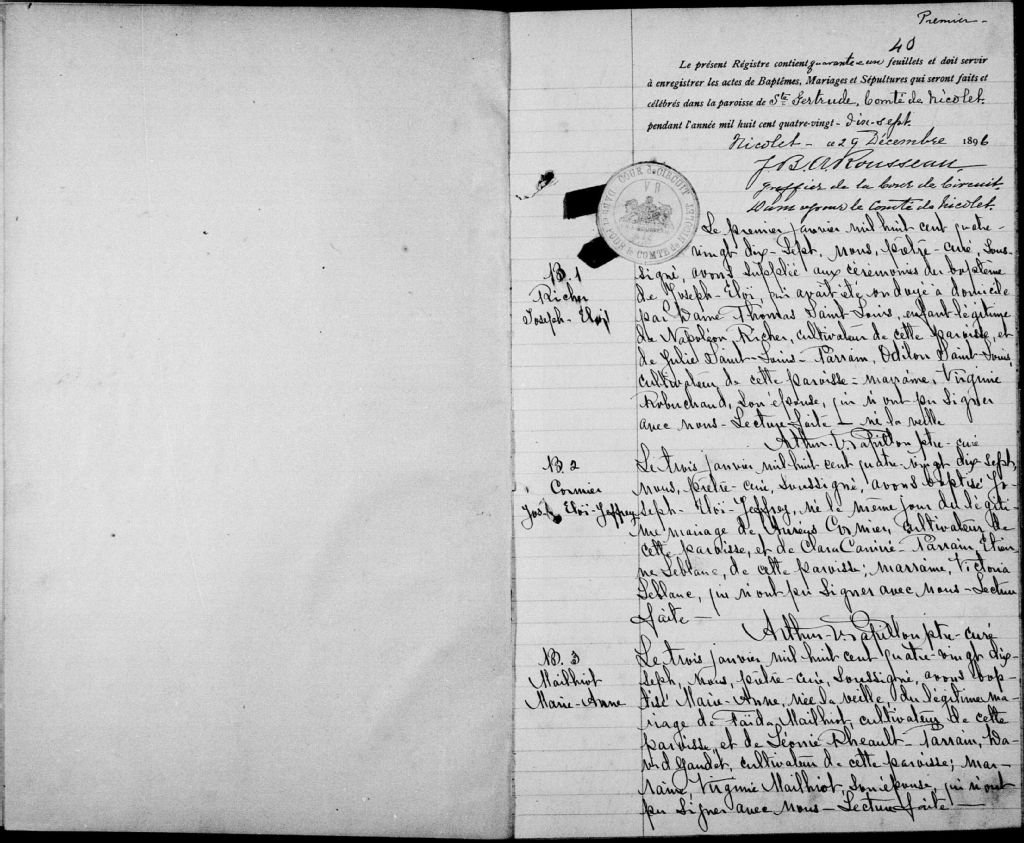 Premier -
40
Le présent Régistre contient quarante et un feuillets et doit servir
à enregistrer les actes de Baptêmes, Mariages et Sépultures qui seront faits et
célébrés dans la paroisse de Ste Gertrude, Comté de Nicolet.
pendant l'année mil huit cent quatre-vingt- dix-sept.
Nicolet - ce 29 Décembre 1896
J.B.A. Rousseau
greffier de la Cour de Circuit
Dans et pour le Comté de Nicolet.
COUR de CIRCUIT
V R
COMTE de NICOLET
Le premier janvier mil huit cent quatre-
vingt dix-sept, nous, prêtre-curé, sous-
B. 1
signé, avons supplié aux cérémonies du baptême
Richer
de Joseph-Eloï, qui avait été ondoyé à domicile
Joseph-Eloï
par Dame Thomas Saint Louis, enfant légitime
de Napoléon Richer, cultivateur de cette paroisse, et
de Julie Saint-Louis - Parrain, Odilon Saint-Louis,
cultivateur de cette paroisse - marraine, Virginie
Robichaud, son épouse, qui n'ont pu signer
avec nous - Lecture faite - né la veille
Arthur Papillon ptre-curé
B. 2
Le trois janvier mil-huit cent quatre-vingt dix-sept,
Cormier
nous, prêtre-curé, soussigné, avons baptisé Jo-
Jos. Eloï-Jeffrey
seph-Eloï-Jeffrey, né le même jour du légiti-
me mariage de Cormier, cultivateur de
cette paroisse, et de Clara - Parrain, Etien-
ne Leblanc, de cette paroisse; marraine, Victoria
Leblanc, qui n'ont pu signer avec nous - Lecture
faite -
Arthur Papillon ptre-curé
B. 3
Le trois janvier mil huit cent quatre-vingt dix-
Mailhiot
sept, nous, prêtre-curé, soussigné, avons bap-
Marie-Anne
tisé Marie-Anne, née la veille, du légitime ma-
riage de Mailhiot, cultivateur de cette
paroisse, et de Léonie Rheault - Parrain, Da-
vid Gaudet, cultivateur de cette paroisse; mar-
raine, Virginie Mailhiot, son épouse, qui n'ont
pu signer avec nous - Lecture faite -